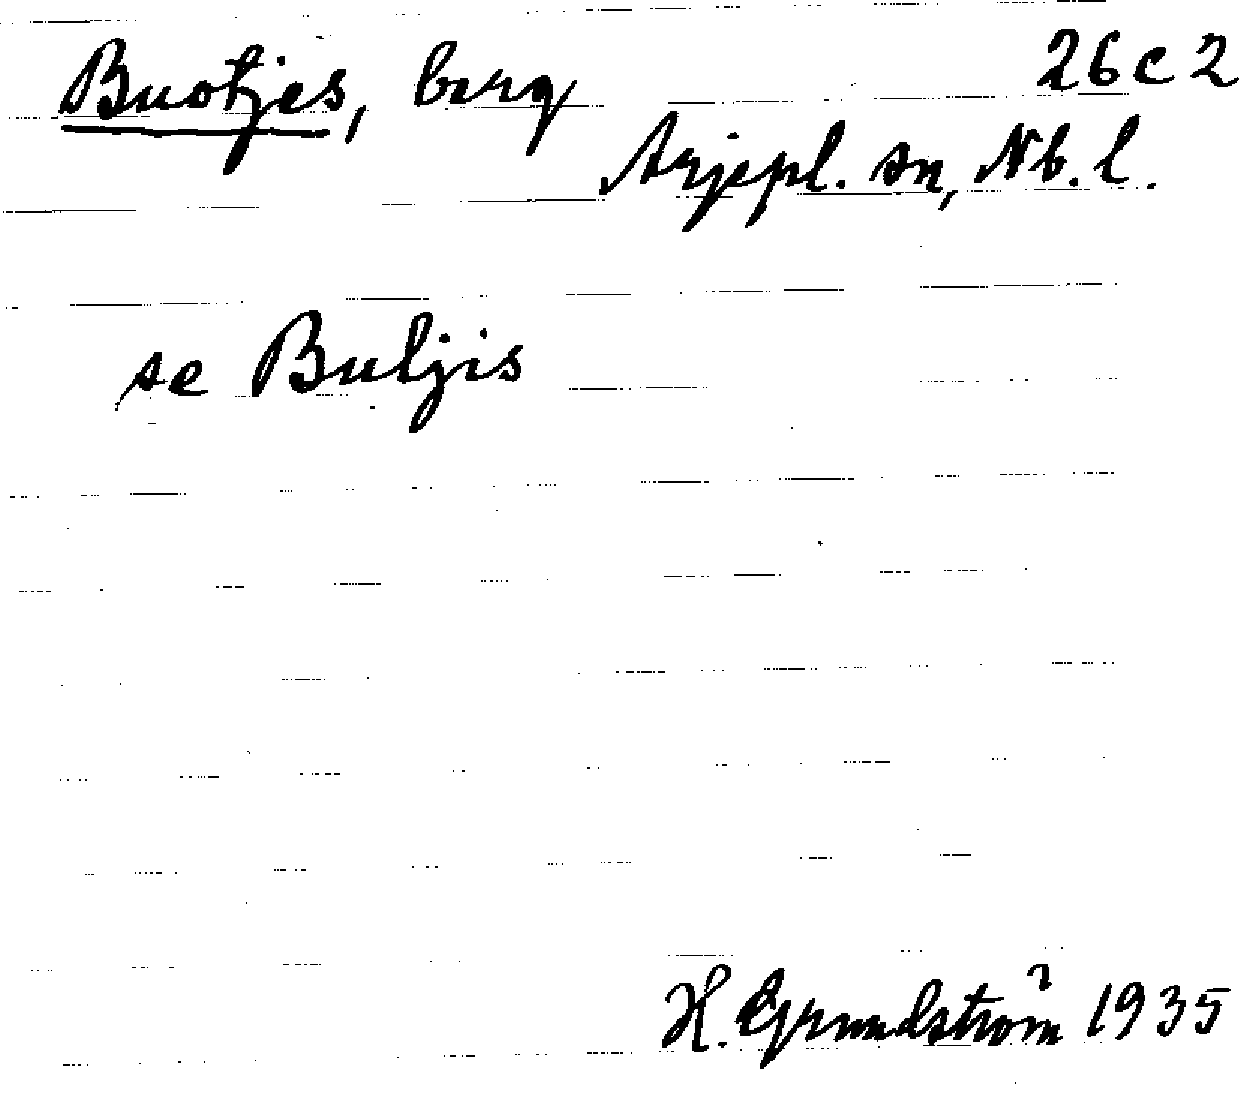 Buotjes, berg 26 c 2
Arjepl. sn, Nb. l.
se Buljis
H. Grundström 1935